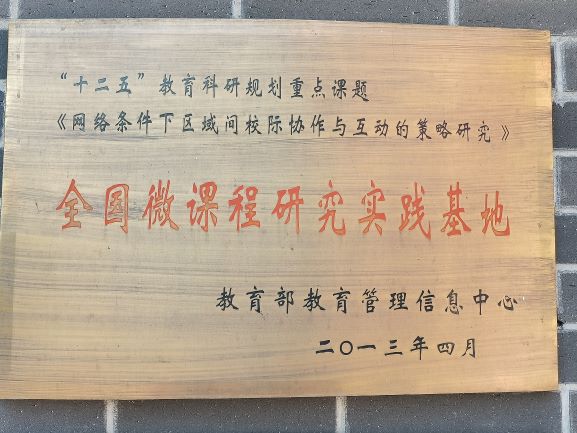 “十二五”教育科研规划重点课题
《网络条件下区域间校际协作与互动的策略研究》
全国微课程研究实践基地
教育部教育管理信息中心
二〇一三年四月